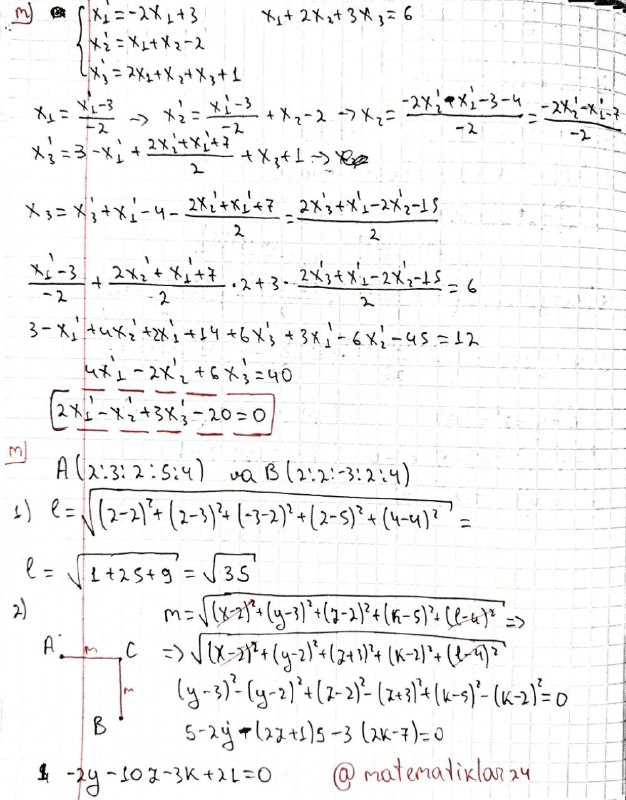 m) { x₁' = -2x₁ + 3    x₁ + 2x₂ + 3x₃ = 6
x₂' = x₁ + x₂ - 2
x₃' = 2x₁ + x₂ + x₃ + 1
x₁ = (x₁' - 3)/(-2) → x₂' = (x₁' - 3)/(-2) + x₂ - 2 → x₂ = (-2x₂' - x₁' - 3 - 4)/(-2) = (-2x₂' - x₁' - 7)/(-2)
x₃' = 3 - x₁' + (2x₂' + x₁' + 7)/2 + x₃ + 1 →
x₃ = x₃' + x₁' - 4 - (2x₂' + x₁' + 7)/2 = (2x₃' + x₁' - 2x₂' - 15)/2
(x₁' - 3)/(-2) + (2x₂' + x₁' + 7)/(-2) · 2 + 3 · (2x₃' + x₁' - 2x₂' - 15)/2 = 6
3 - x₁' + 4x₂' + 2x₁' + 14 + 6x₃' + 3x₁' - 6x₂' - 45 = 12
4x₁' - 2x₂' + 6x₃' = 40
2x₁' - x₂' + 3x₃' - 20 = 0
m)
A(2:3:2:5:4) va B(2:2:-3:2:4)
1) l = √((2-2)² + (2-3)² + (-3-2)² + (2-5)² + (4-4)²) =
l = √(1+25+9) = √35
2) m = √((x-2)² + (y-3)² + (z-2)² + (k-5)² + (l-4)²) =>
A m C => √((x-2)² + (y-2)² + (z+3)² + (k-2)² + (l-4)²)
m (y-3)² - (y-2)² + (z-2)² - (z+3)² + (k-5)² - (k-2)² = 0
B 5 - 2y - (2z+1)5 - 3(2k-7) = 0
-2y - 10z - 3k + 21 = 0 @matematiklar24